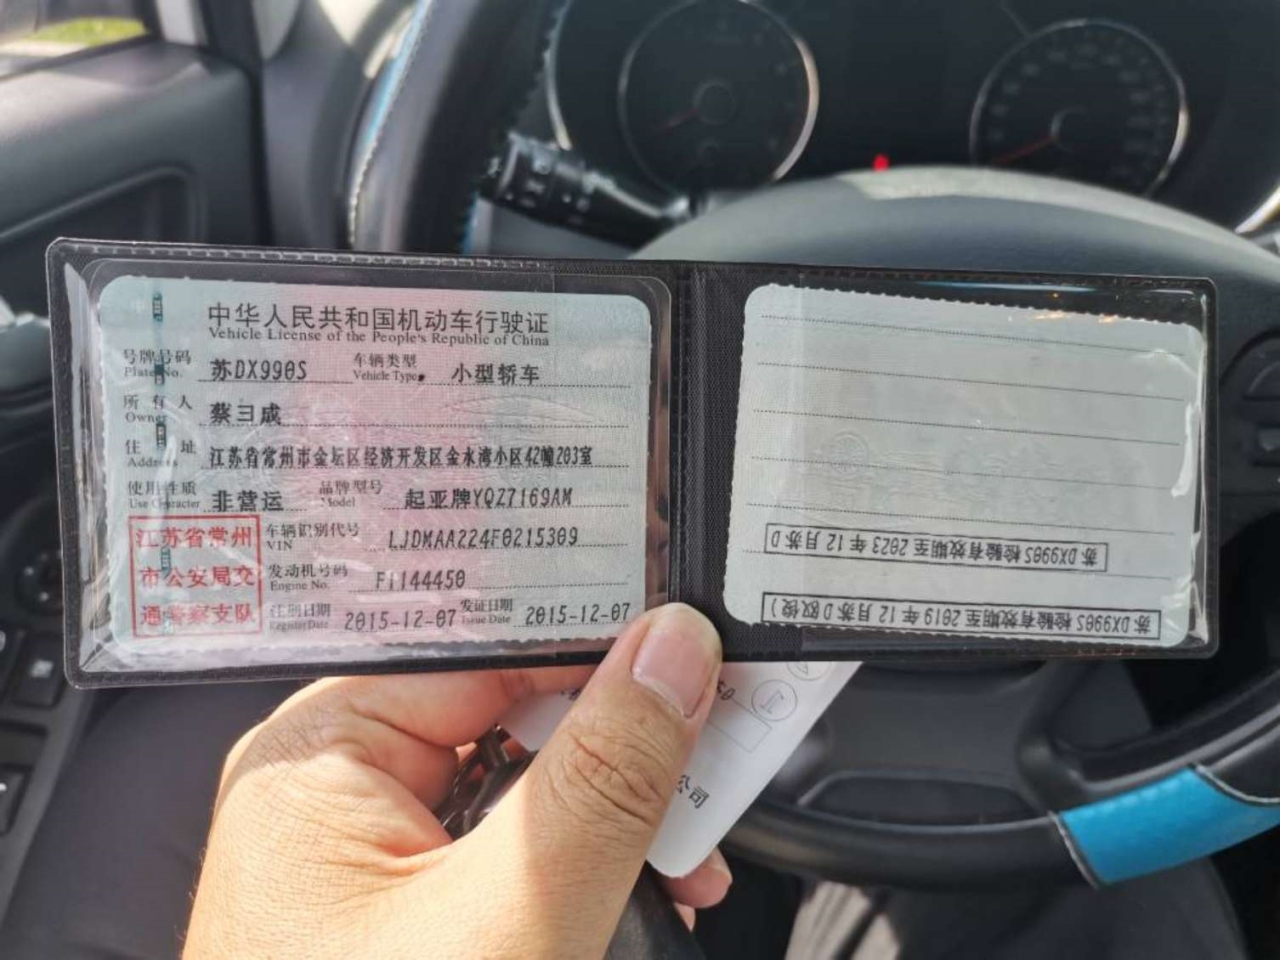 中华人民共和国机动车行驶证
Vehicle License of the People's Republic of China
号牌号码 Plate No. 苏DX990S 车辆类型 Vehicle Type 小型轿车
所有人 Owner 蔡彐成
住址 Address 江苏省常州市金坛区经济开发区金水湾小区42幢203室
使用性质 Use Character 非营运 品牌型号 Model 起亚牌YQZ7169AM
江苏省常州
市公安局交
通警察支队
车辆识别代号 VIN LJDMAA224F0215309
发动机号码 Engine No. F1144450
注册日期 Register Date 2015-12-07 发证日期 Issue Date 2015-12-07
苏DX990S 检验有效期至 2023 年 12 月苏 D
苏DX990S 检验有效期至 2019 年 12 月苏 D
公司